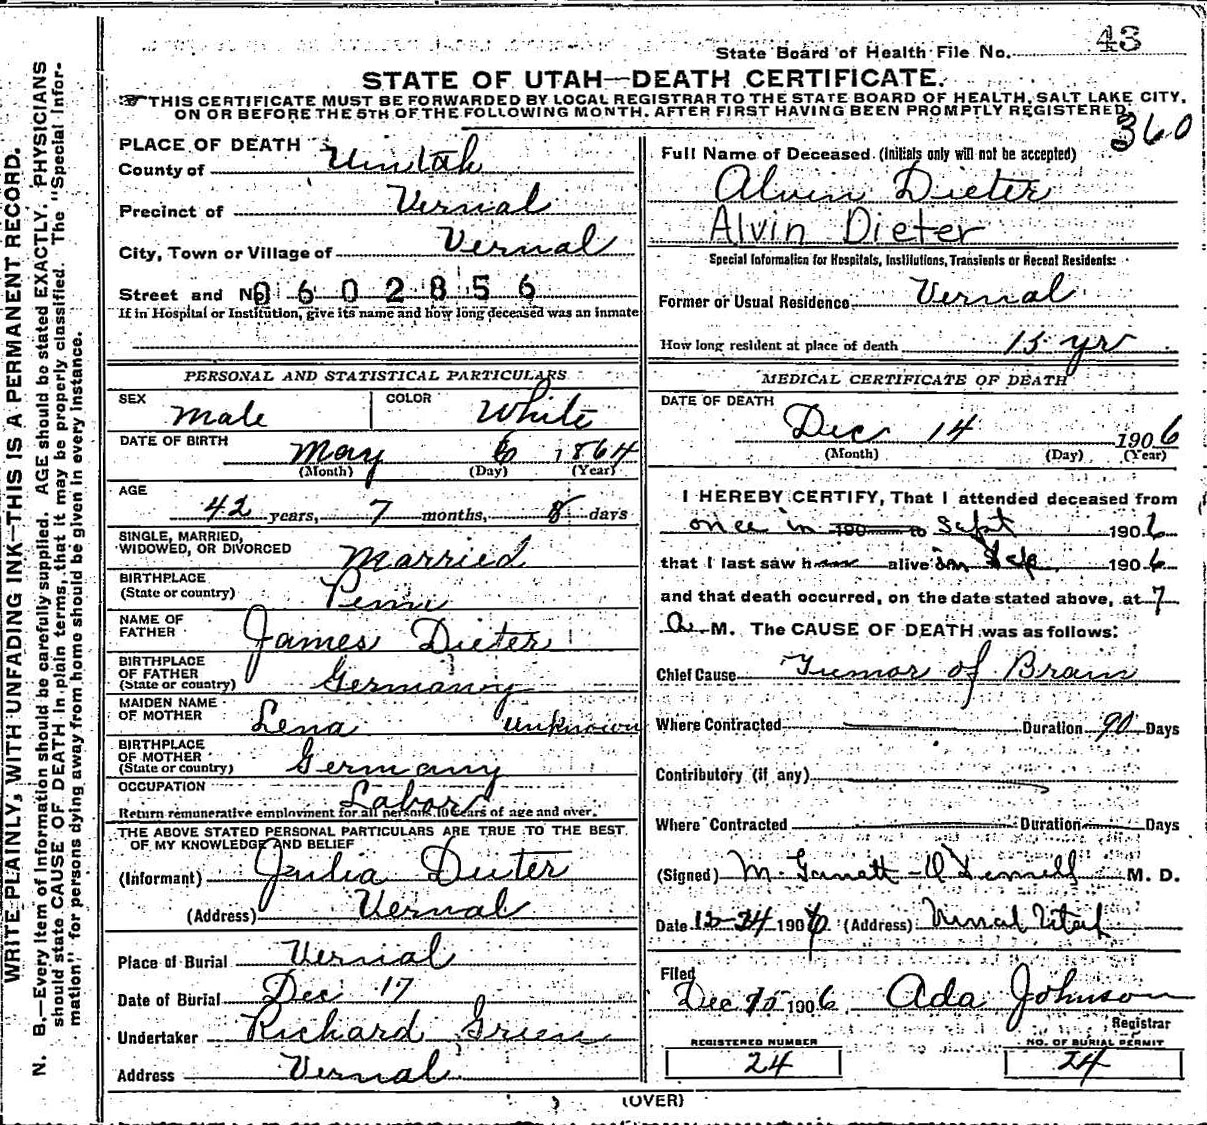 State Board of Health File No. 43
STATE OF UTAH—DEATH CERTIFICATE.
THIS CERTIFICATE MUST BE FORWARDED BY LOCAL REGISTRAR TO THE STATE BOARD OF HEALTH, SALT LAKE CITY,
ON OR BEFORE THE 5TH OF THE FOLLOWING MONTH, AFTER FIRST HAVING BEEN PROMPTLY REGISTERED.
360
WRITE PLAINLY, WITH UNFADING INK—THIS IS A PERMANENT RECORD.
N. B.—Every item of information should be carefully supplied. AGE should be stated EXACTLY. PHYSICIANS
should state CAUSE OF DEATH in plain terms, that it may be properly classified. The "Special Infor-
mation" for persons dying away from home should be given in every instance.
PLACE OF DEATH
County of Uintah
Precinct of Vernal
City, Town or Village of Vernal
Street and No. 0602856
If in Hospital or Institution, give its name and how long deceased was an inmate
PERSONAL AND STATISTICAL PARTICULARS
SEX Male COLOR White
DATE OF BIRTH
May 6 1864
(Month) (Day) (Year)
AGE
42 years, 7 months, 8 days
SINGLE, MARRIED,
WIDOWED, OR DIVORCED Married
BIRTHPLACE
(State or country) Penn
NAME OF
FATHER James Dieter
BIRTHPLACE
OF FATHER
(State or country) Germany
MAIDEN NAME
OF MOTHER Lena unknown
BIRTHPLACE
OF MOTHER
(State or country) Germany
OCCUPATION
Labor
Return remunerative employment for all persons 10 years of age and over.
THE ABOVE STATED PERSONAL PARTICULARS ARE TRUE TO THE BEST
OF MY KNOWLEDGE AND BELIEF
(Informant) Julia Dieter
(Address) Vernal
Place of Burial Vernal
Date of Burial Dec 17
Undertaker Richard Green
Address Vernal
Full Name of Deceased (Initials only will not be accepted)
Alvin Dieter
Alvin Dieter
Special Information for Hospitals, Institutions, Transients or Recent Residents:
Former or Usual Residence Vernal
How long resident at place of death 15 yr
MEDICAL CERTIFICATE OF DEATH
DATE OF DEATH
Dec 14 1906
(Month) (Day) (Year)
I HEREBY CERTIFY, That I attended deceased from
once in 190 to Sept 1906
that I last saw him alive in Sep 1906
and that death occurred, on the date stated above, at 7
A. M. The CAUSE OF DEATH was as follows:
Chief Cause Tumor of Brain
Where Contracted Duration 90 Days
Contributory (if any)
Where Contracted Duration Days
(Signed) M. D.
Date 12-24 1906 (Address) Vernal Utah
Filed
Dec 1906 Ada Johnson
Registrar
REGISTERED NUMBER
24
NO. OF BURIAL PERMIT
24
(OVER)